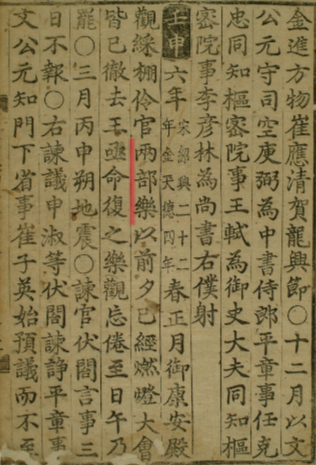 金進方物崔應清賀龍興節○十二月以文
公元守司空庾弼為中書侍郎平章事任克
忠同知樞密院事王軾為御史大夫同知樞
密院事李彥林為尚書右僕射
壬申六年宋紹興二十二年金天德四年春正月御康安殿
觀綵棚伶官兩部樂以前夕已經燃燈大會
皆已徹去王亟命復之樂觀忘倦至日午乃
罷○三月丙申朔地震○諫官伏閤言事三
日不報○右諫議申淑等伏閤諫諍平章事
文公元知門下省事崔子英始預議而不至